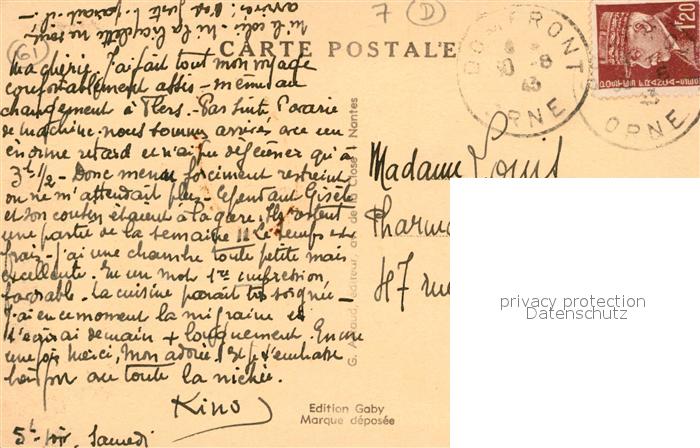 arrivés! Pas juste! parait-il -
ni le colis ni la bicyclette ne sont
7 D
61
CARTE POSTALE
DOMFRONT
30 -8
43
ORNE
1F20
43
ORNE
Ma chérie. J'ai fait tout mon voyage
confortablement assis - même au
changement à Flers. Par suite d'avarie
de machine, nous sommes arrivés avec un
énorme retard et n'ai pu déjeuner qu'à
3h 1/2 - Donc menu forcément restreint
on ne m'attendait plus. Cependant Gisèle
et son cousin étaient à la gare. Ils restent
une partie de la semaine !! Le temps est
frais - j'ai une chambre toute petite mais
excellente. En un mot 1re impression
favorable. La cuisine parait très soignée -
J'ai en ce moment la migraine et
t'écrirai demain + longuement. Encore
une fois merci, mon adorée. Je t'embrasse
bien fort avec toute la nichée.
Kino
5h soir, Samedi
G. éditeur, av. de la Close - Nantes
Edition Gaby
Marque déposée
Madame Louis
Pharma
47 rue
privacy protection
Datenschutz